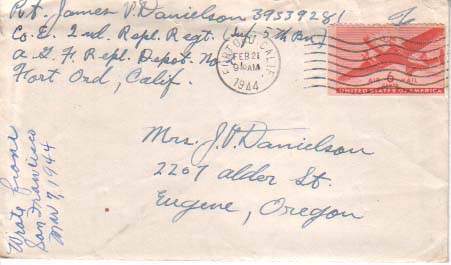 Pvt. James V. Danielson 39539281
Co. E. 2nd. Repl. Regt. (Inf. 5th Bn)
A.G.F. Repl. Depot. No.
Fort Ord, Calif.
FORT ORD, CALIF.
FEB 21
9 AM
1944
AIR MAIL
6
UNITED STATES OF AMERICA
Mrs. J. V. Danielson
2207 alder St.
Eugene, Oregon
Wrote from
San Francisco
Mar 7, 1944